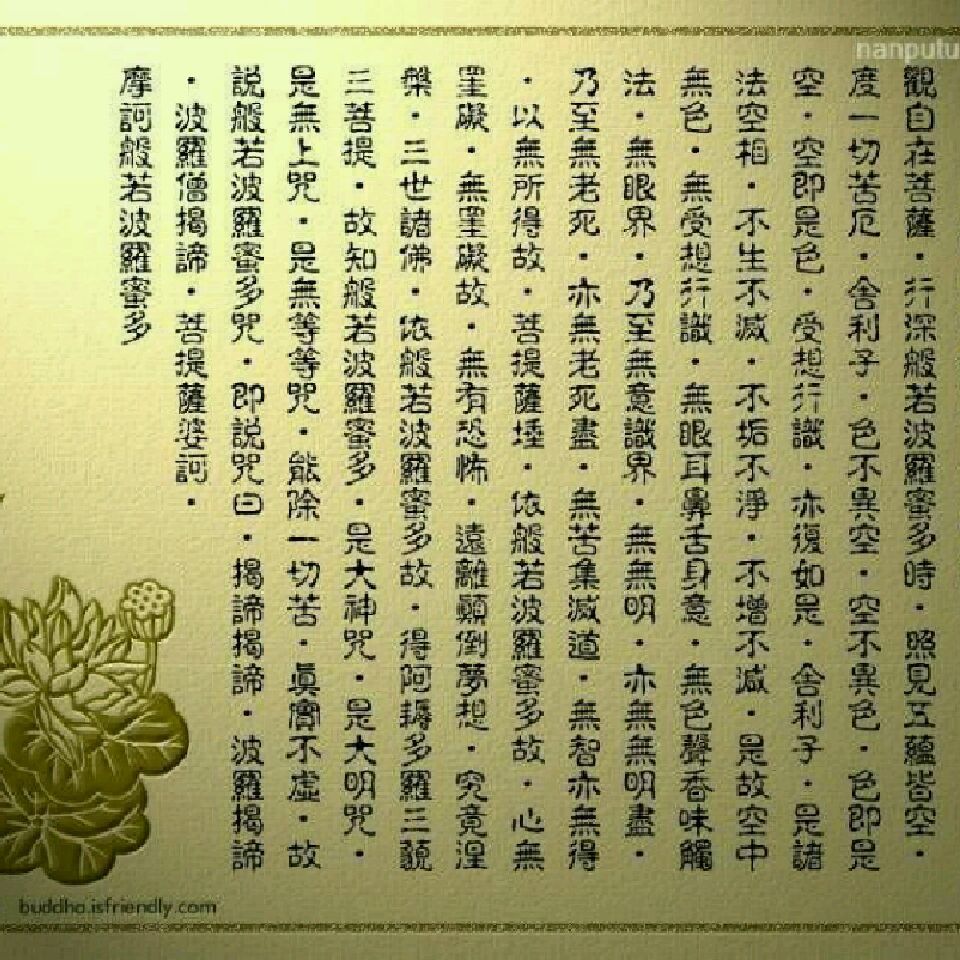 觀自在菩薩・行深般若波羅蜜多時・照見五蘊皆空・
度一切苦厄・舍利子・色不異空・空不異色・色即是
空・空即是色・受想行識・亦復如是・舍利子・是諸
法空相・不生不滅・不垢不淨・不增不減・是故空中
無色・無受想行識・無眼耳鼻舌身意・無色聲香味觸
法・無眼界・乃至無意識界・無無明・亦無無明盡・
乃至無老死・亦無老死盡・無苦集滅道・無智亦無得
・以無所得故・菩提薩埵・依般若波羅蜜多故・心無
罣礙・無罣礙故・無有恐怖・遠離顛倒夢想・究竟涅
槃・三世諸佛・依般若波羅蜜多故・得阿耨多羅三藐
三菩提・故知般若波羅蜜多・是大神咒・是大明咒・
是無上咒・是無等等咒・能除一切苦・眞實不虛・故
說般若波羅蜜多咒・即說咒曰・揭諦揭諦・波羅揭諦
・波羅僧揭諦・菩提薩婆訶・
摩訶般若波羅蜜多
nanputu
buddha.isfriendly.com